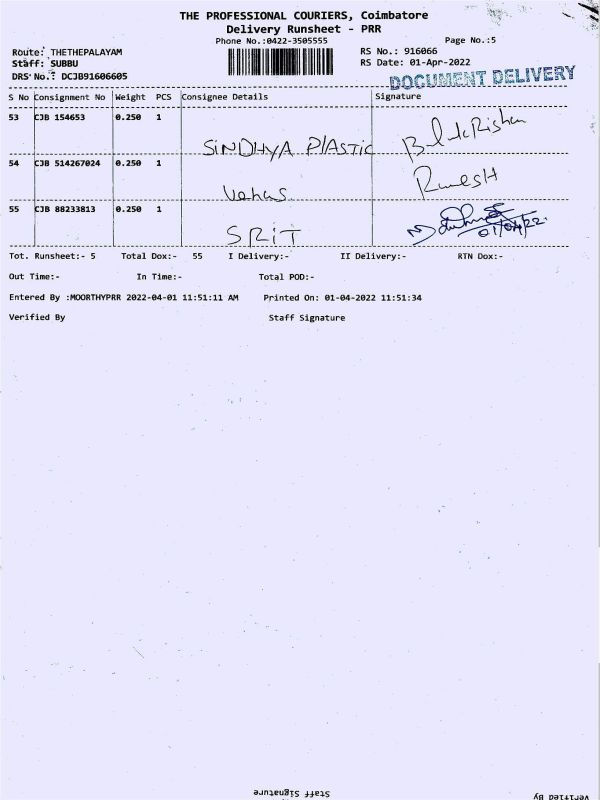 THE PROFESSIONAL COURIERS, Coimbatore
Delivery Runsheet - PRR
Phone No.:0422-3505555
Page No.:5
Route: THETHEPALAYAM
RS No.: 916066
Staff: SUBBU
RS Date: 01-Apr-2022
DRS No.: DCJB91606605
DOCUMENT DELIVERY
S No Consignment No Weight PCS Consignee Details Signature
53 CJB 154653 0.250 1
SiNDHYA PlASTIC
54 CJB 514267024 0.250 1
Venus RamesH
55 CJB 88233813 0.250 1
SRiT 01/04/22.
Tot. Runsheet:- 5 Total Dox:- 55 I Delivery:- II Delivery:- RTN Dox:-
Out Time:- In Time:- Total POD:-
Entered By :MOORTHYPRR 2022-04-01 11:51:11 AM Printed On: 01-04-2022 11:51:34
Verified By Staff Signature
Staff Signature Verified By